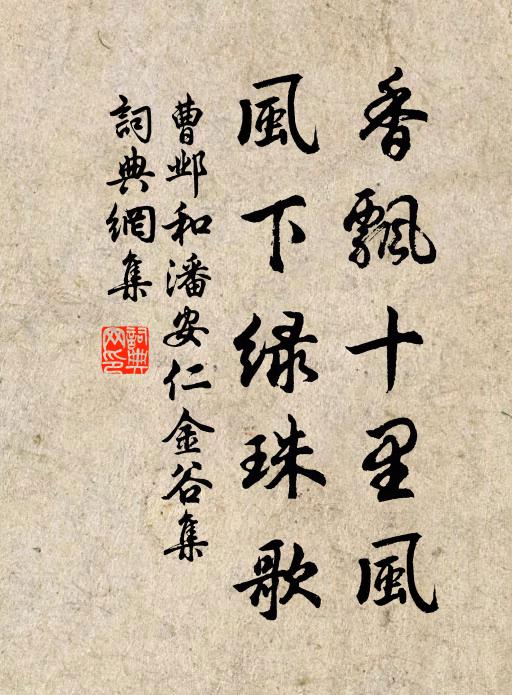 香飄十里風
風下緑珠歌
曹邺和潘安仁金谷集
詞典網集
詞典网印